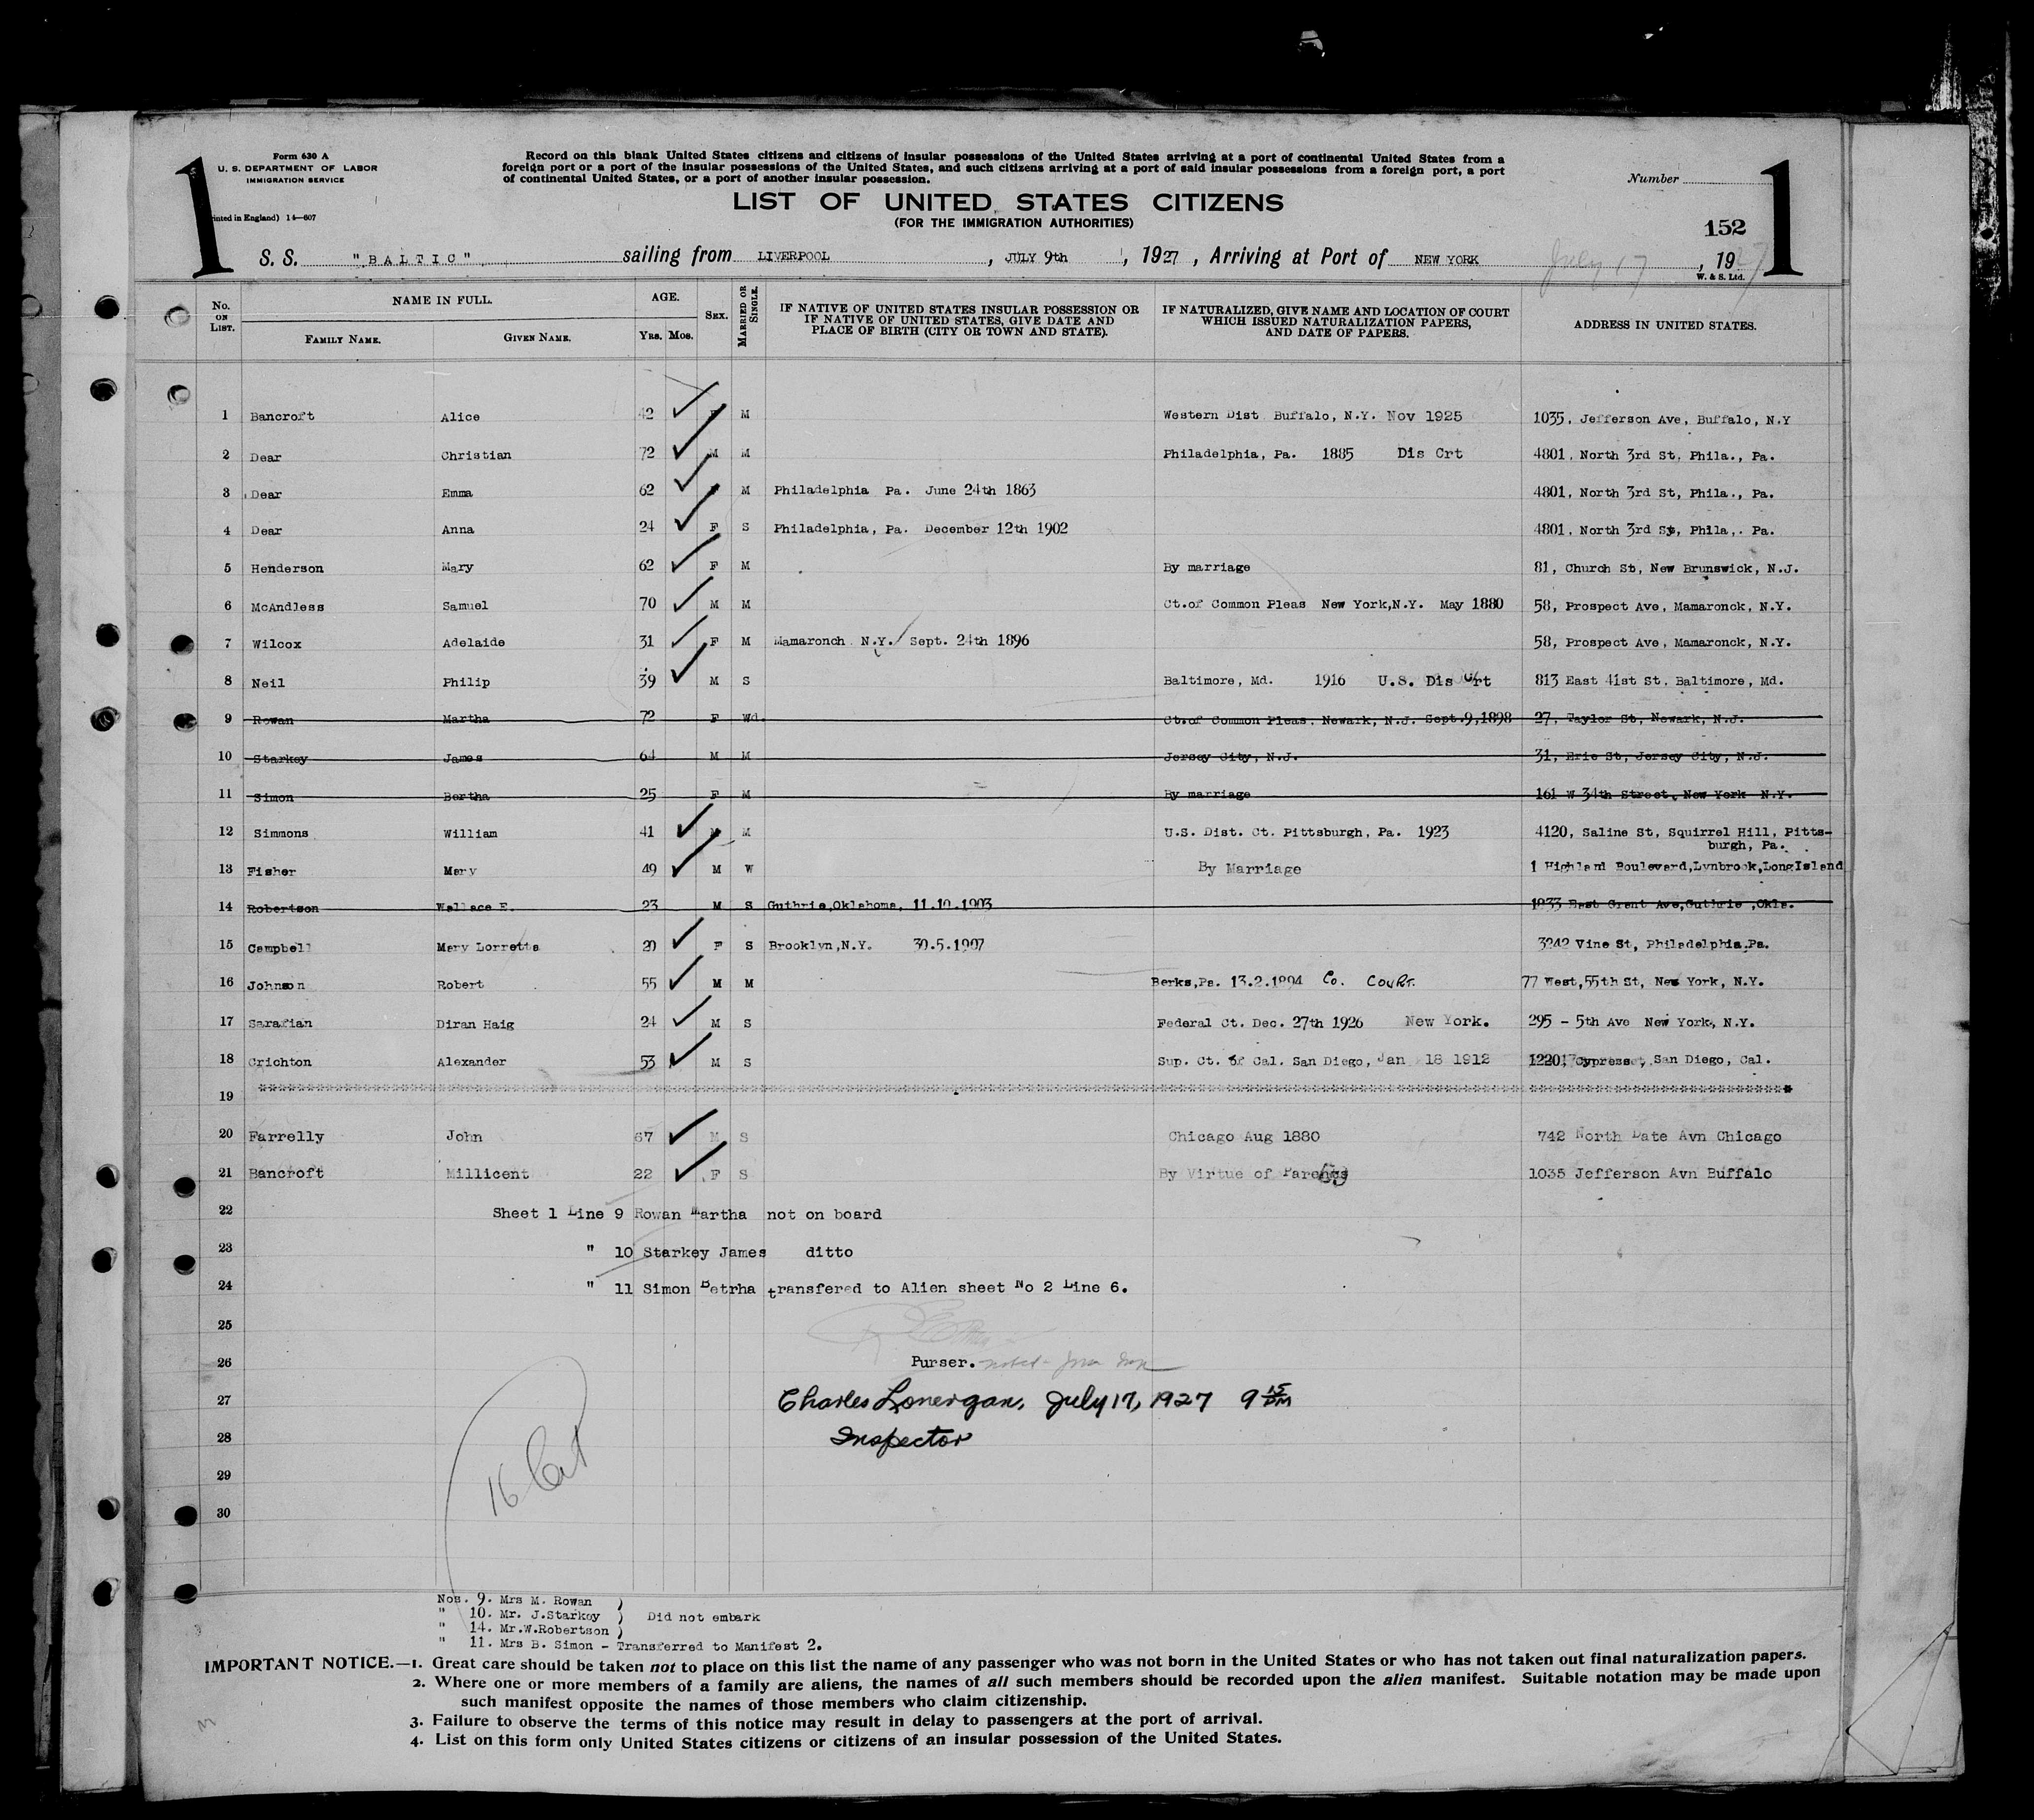 1
Form 630 A
U. S. DEPARTMENT OF LABOR
IMMIGRATION SERVICE
rinted in England) 14—607
Record on this blank United States citizens and citizens of insular possessions of the United States arriving at a port of continental United States from a
foreign port or a port of the insular possessions of the United States, and such citizens arriving at a port of said insular possessions from a foreign port, a port
of continental United States, or a port of another insular possession.
LIST OF UNITED STATES CITIZENS
(FOR THE IMMIGRATION AUTHORITIES)
Number
1
152
S. S. "BALTIC" sailing from LIVERPOOL, JULY 9th, 1927, Arriving at Port of NEW YORK July 17, 1927
W. & S. Ltd.
No. ON LIST. NAME IN FULL. FAMILY NAME. GIVEN NAME. AGE. YRS. MOS. SEX. MARRIED OR SINGLE. IF NATIVE OF UNITED STATES INSULAR POSSESSION OR IF NATIVE OF UNITED STATES, GIVE DATE AND PLACE OF BIRTH (CITY OR TOWN AND STATE). IF NATURALIZED, GIVE NAME AND LOCATION OF COURT WHICH ISSUED NATURALIZATION PAPERS, AND DATE OF PAPERS. ADDRESS IN UNITED STATES.
1 Bancroft Alice 42 F M Western Dist Buffalo, N.Y. Nov 1925 1035, Jefferson Ave, Buffalo, N.Y
2 Dear Christian 72 M M Philadelphia, Pa. 1885 Dis Crt 4801, North 3rd St, Phila., Pa.
3 Dear Emma 62 M Philadelphia Pa. June 24th 1863 4801, North 3rd St, Phila., Pa.
4 Dear Anna 24 F S Philadelphia, Pa. December 12th 1902 4801, North 3rd St, Phila,. Pa.
5 Henderson Mary 62 F M By marriage 81, Church St, New Brunswick, N.J.
6 McAndless Samuel 70 M M Ct.of Common Pleas New York,N.Y. May 1880 58, Prospect Ave, Mamaronck, N.Y.
7 Wilcox Adelaide 31 F M Mamaronch N.Y. Sept. 24th 1896 58, Prospect Ave, Mamaronck, N.Y.
8 Neil Philip 39 M S Baltimore, Md. 1916 U.S. Dis Crt 813 East 41st St. Baltimore, Md.
9 Rowan Martha 72 F Wd. Ct.of Common Pleas, Newark, N.J. Sept.9,1898 27, Taylor St, Newark, N.J.
10 Starkey James 64 M M Jersey City, N.J. 31, Erie St, Jersey City, N.J.
11 Simon Bertha 25 F M By marriage 161 W 34th Street, New York N.Y.
12 Simmons William 41 M M U.S. Dist. Ct. Pittsburgh, Pa. 1923 4120, Saline St, Squirrel Hill, Pitts-
burgh, Pa.
13 Fisher Mary 49 M W By Marriage 1 Highland Boulevard,Lynbrook,LongIsland
14 Robertson Wallace E. 23 M S Guthrie,Oklahoma, 11.10.1903 1933 East Grant Ave,Guthrie ,Okla.
15 Campbell Mary Lorretta 20 F S Brooklyn,N.Y. 30.5.1907 3242 Vine St, Philadelphia,Pa.
16 Johnson Robert 55 M M Berks,Pa. 13.2.1894 Co. Court. 77 West,55th St, New York, N.Y.
17 Sarafian Diran Haig 24 M S Federal Ct. Dec. 27th 1926 New York. 295 - 5th Ave New York, N.Y.
18 Crichton Alexander 53 M S Sup. Ct. of Cal. San Diego, Jan 18 1912 Cypress, San Diego, Cal.
19
20 Farrelly John 67 M S Chicago Aug 1880 742 North Date Avn Chicago
21 Bancroft Millicent 22 F S By Virtue of Parents 1035 Jefferson Avn Buffalo
22 Sheet 1 Line 9 Rowan Martha not on board
23 " 10 Starkey James ditto
24 " 11 Simon Betrha transfered to Alien sheet No 2 Line 6.
25
26 Purser.
27 Charles Lonergan, July 17, 1927 9 15 PM
28 Inspector
29
30
16 Cit
Nos. 9. Mrs M. Rowan )
" 10. Mr. J.Starkey ) Did not embark
" 14. Mr.W.Robertson )
" 11. Mrs B. Simon - Transferred to Manifest 2.
IMPORTANT NOTICE.—1. Great care should be taken not to place on this list the name of any passenger who was not born in the United States or who has not taken out final naturalization papers.
2. Where one or more members of a family are aliens, the names of all such members should be recorded upon the alien manifest. Suitable notation may be made upon
such manifest opposite the names of those members who claim citizenship.
3. Failure to observe the terms of this notice may result in delay to passengers at the port of arrival.
4. List on this form only United States citizens or citizens of an insular possession of the United States.